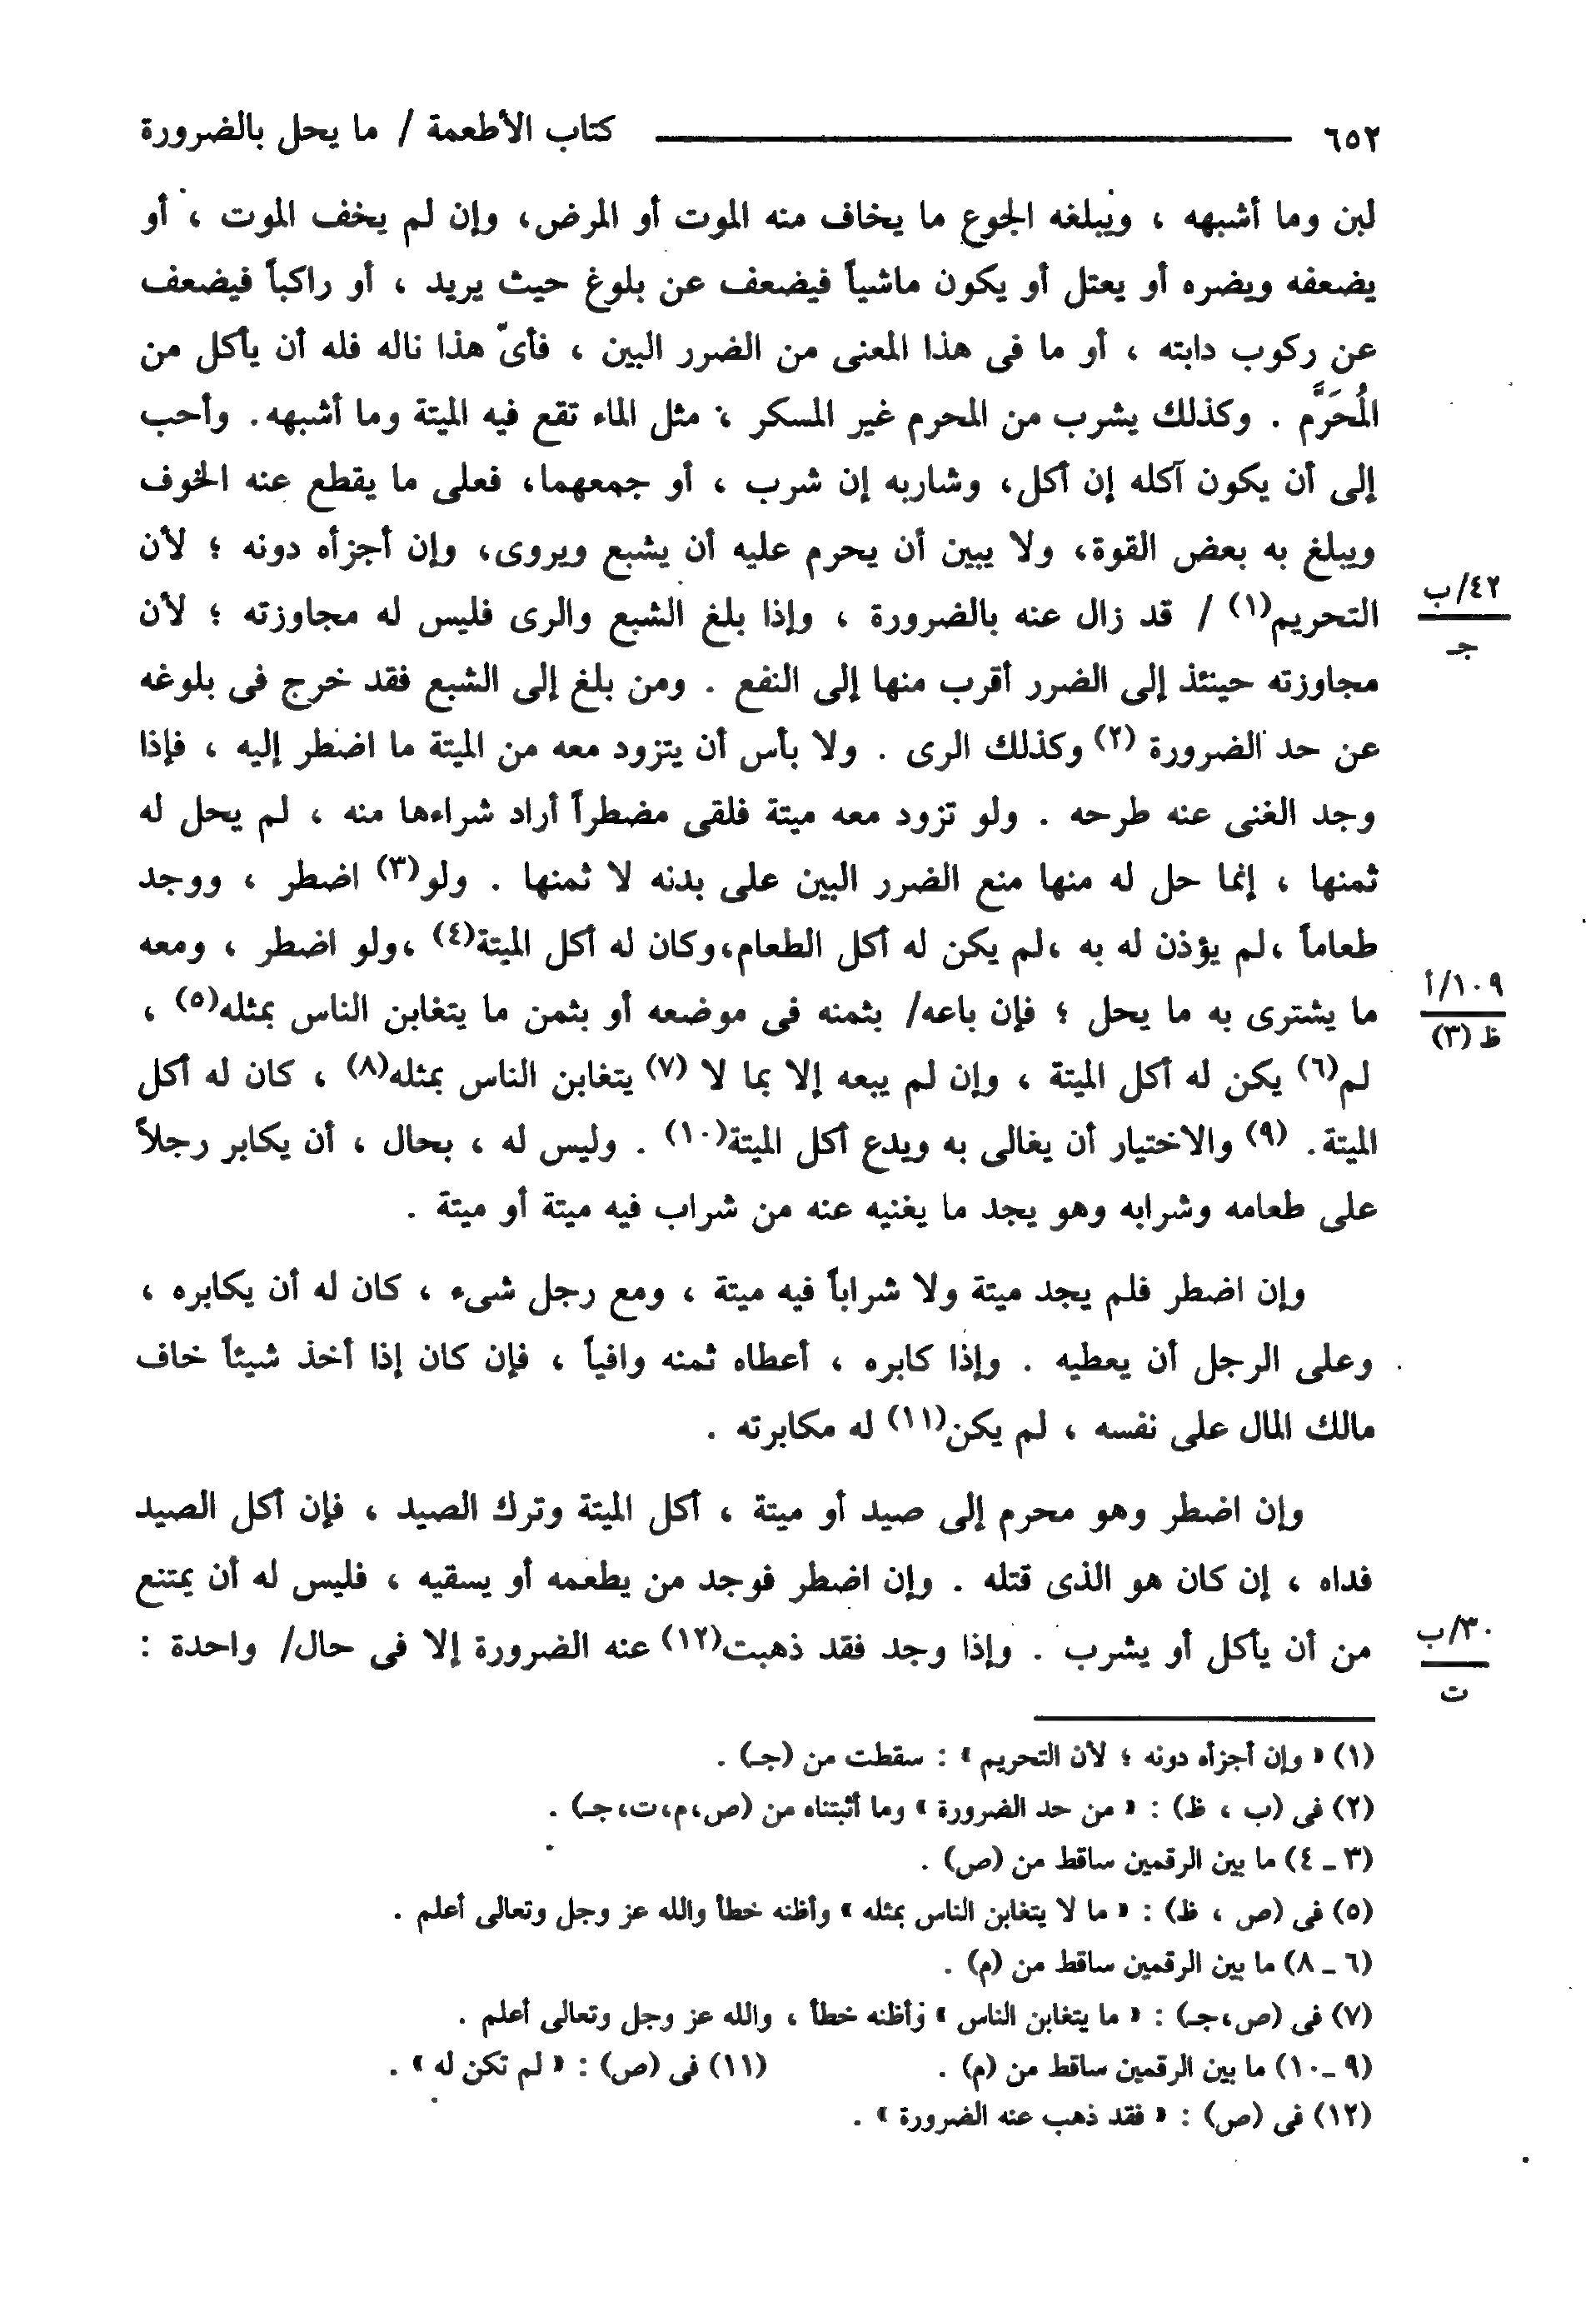 ٦٥٢ كتاب الأطعمة / ما يحل بالضرورة
لبن وما أشبهه ، ويبلغه الجوع ما يخاف منه الموت أو المرض، وإن لم يخف الموت ، أو
يضعفه ويضره أو يعتل أو يكون ماشياً فيضعف عن بلوغ حيث يريد ، أو راكباً فيضعف
عن ركوب دابته ، أو ما فى هذا المعنى من الضرر البين ، فأىّ هذا ناله فله أن يأكل من
المُحَرَّم . وكذلك يشرب من المحرم غير المسكر ، مثل الماء تقع فيه الميتة وما أشبهه. وأحب
إلى أن يكون آكله إن أكل، وشاربه إن شرب ، أو جمعهما، فعلى ما يقطع عنه الخوف
ويبلغ به بعض القوة، ولا يبين أن يحرم عليه أن يشبع ويروى، وإن أجزأه دونه ؛ لأن
التحريم(١) / قد زال عنه بالضرورة ، وإذا بلغ الشبع والرى فليس له مجاوزته ؛ لأن
٤٢/ب
جـ
مجاوزته حينئذ إلى الضرر أقرب منها إلى النفع . ومن بلغ إلى الشبع فقد خرج فى بلوغه
عن حد الضرورة (٢) وكذلك الرى . ولا بأس أن يتزود معه من الميتة ما اضطر إليه ، فإذا
وجد الغنى عنه طرحه . ولو تزود معه ميتة فلقى مضطراً أراد شراءها منه ، لم يحل له
ثمنها ، إنما حل له منها منع الضرر البين على بدنه لا ثمنها . ولو(٣) اضطر ، ووجد
طعاماً ،لم يؤذن له به ،لم يكن له أكل الطعام،وكان له أكل الميتة(٤) ،ولو اضطر ، ومعه
ما يشترى به ما يحل ؛ فإن باعه/ بثمنه فى موضعه أو بثمن ما يتغابن الناس بمثله(٥) ،
١٠٩/أ
ظ (٣)
لم(٦) يكن له أكل الميتة ، وإن لم يبعه إلا بما لا (٧) يتغابن الناس بمثله(٨) ، كان له أكل
الميتة. (٩) والاختيار أن يغالى به ويدع أكل الميتة(١٠) . وليس له ، بحال ، أن يكابر رجلاً
على طعامه وشرابه وهو يجد ما يغنيه عنه من شراب فيه ميتة أو ميتة .
وإن اضطر فلم يجد ميتة ولا شراباً فيه ميتة ، ومع رجل شىء ، كان له أن يكابره ،
وعلى الرجل أن يعطيه . وإذا كابره ، أعطاه ثمنه وافياً ، فإن كان إذا أخذ شيئاً خاف
مالك المال على نفسه ، لم يكن(١١) له مكابرته .
وإن اضطر وهو محرم إلى صيد أو ميتة ، أكل الميتة وترك الصيد ، فإن أكل الصيد
فداه ، إن كان هو الذى قتله . وإن اضطر فوجد من يطعمه أو يسقيه ، فليس له أن يمتنع
من أن يأكل أو يشرب . وإذا وجد فقد ذهبت(١٢) عنه الضرورة إلا فى حال/ واحدة :
٣٠/ب
ت
(١) « وإن أجزأه دونه ؛ لأن التحريم » : سقطت من (جـ) .
(٢) فى (ب ، ظ) : « من حد الضرورة » وما أثبتناه من (ص،م،ت،جـ) .
(٣ ـ ٤) ما بين الرقمين ساقط من (ص) .
(٥) فى (ص ، ظ) : « ما لا يتغابن الناس بمثله » وأظنه خطأ والله عز وجل وتعالى أعلم .
(٦ ـ ٨) ما بين الرقمين ساقط من (م) .
(٧) فى (ص،جـ) : « ما يتغابن الناس » وأظنه خطأ ، والله عز وجل وتعالى أعلم .
(٩ -١٠) ما بين الرقمين ساقط من (م) . (١١) فى (ص) : « لم تكن له » .
(١٢) فى (ص) : « فقد ذهب عنه الضرورة » .